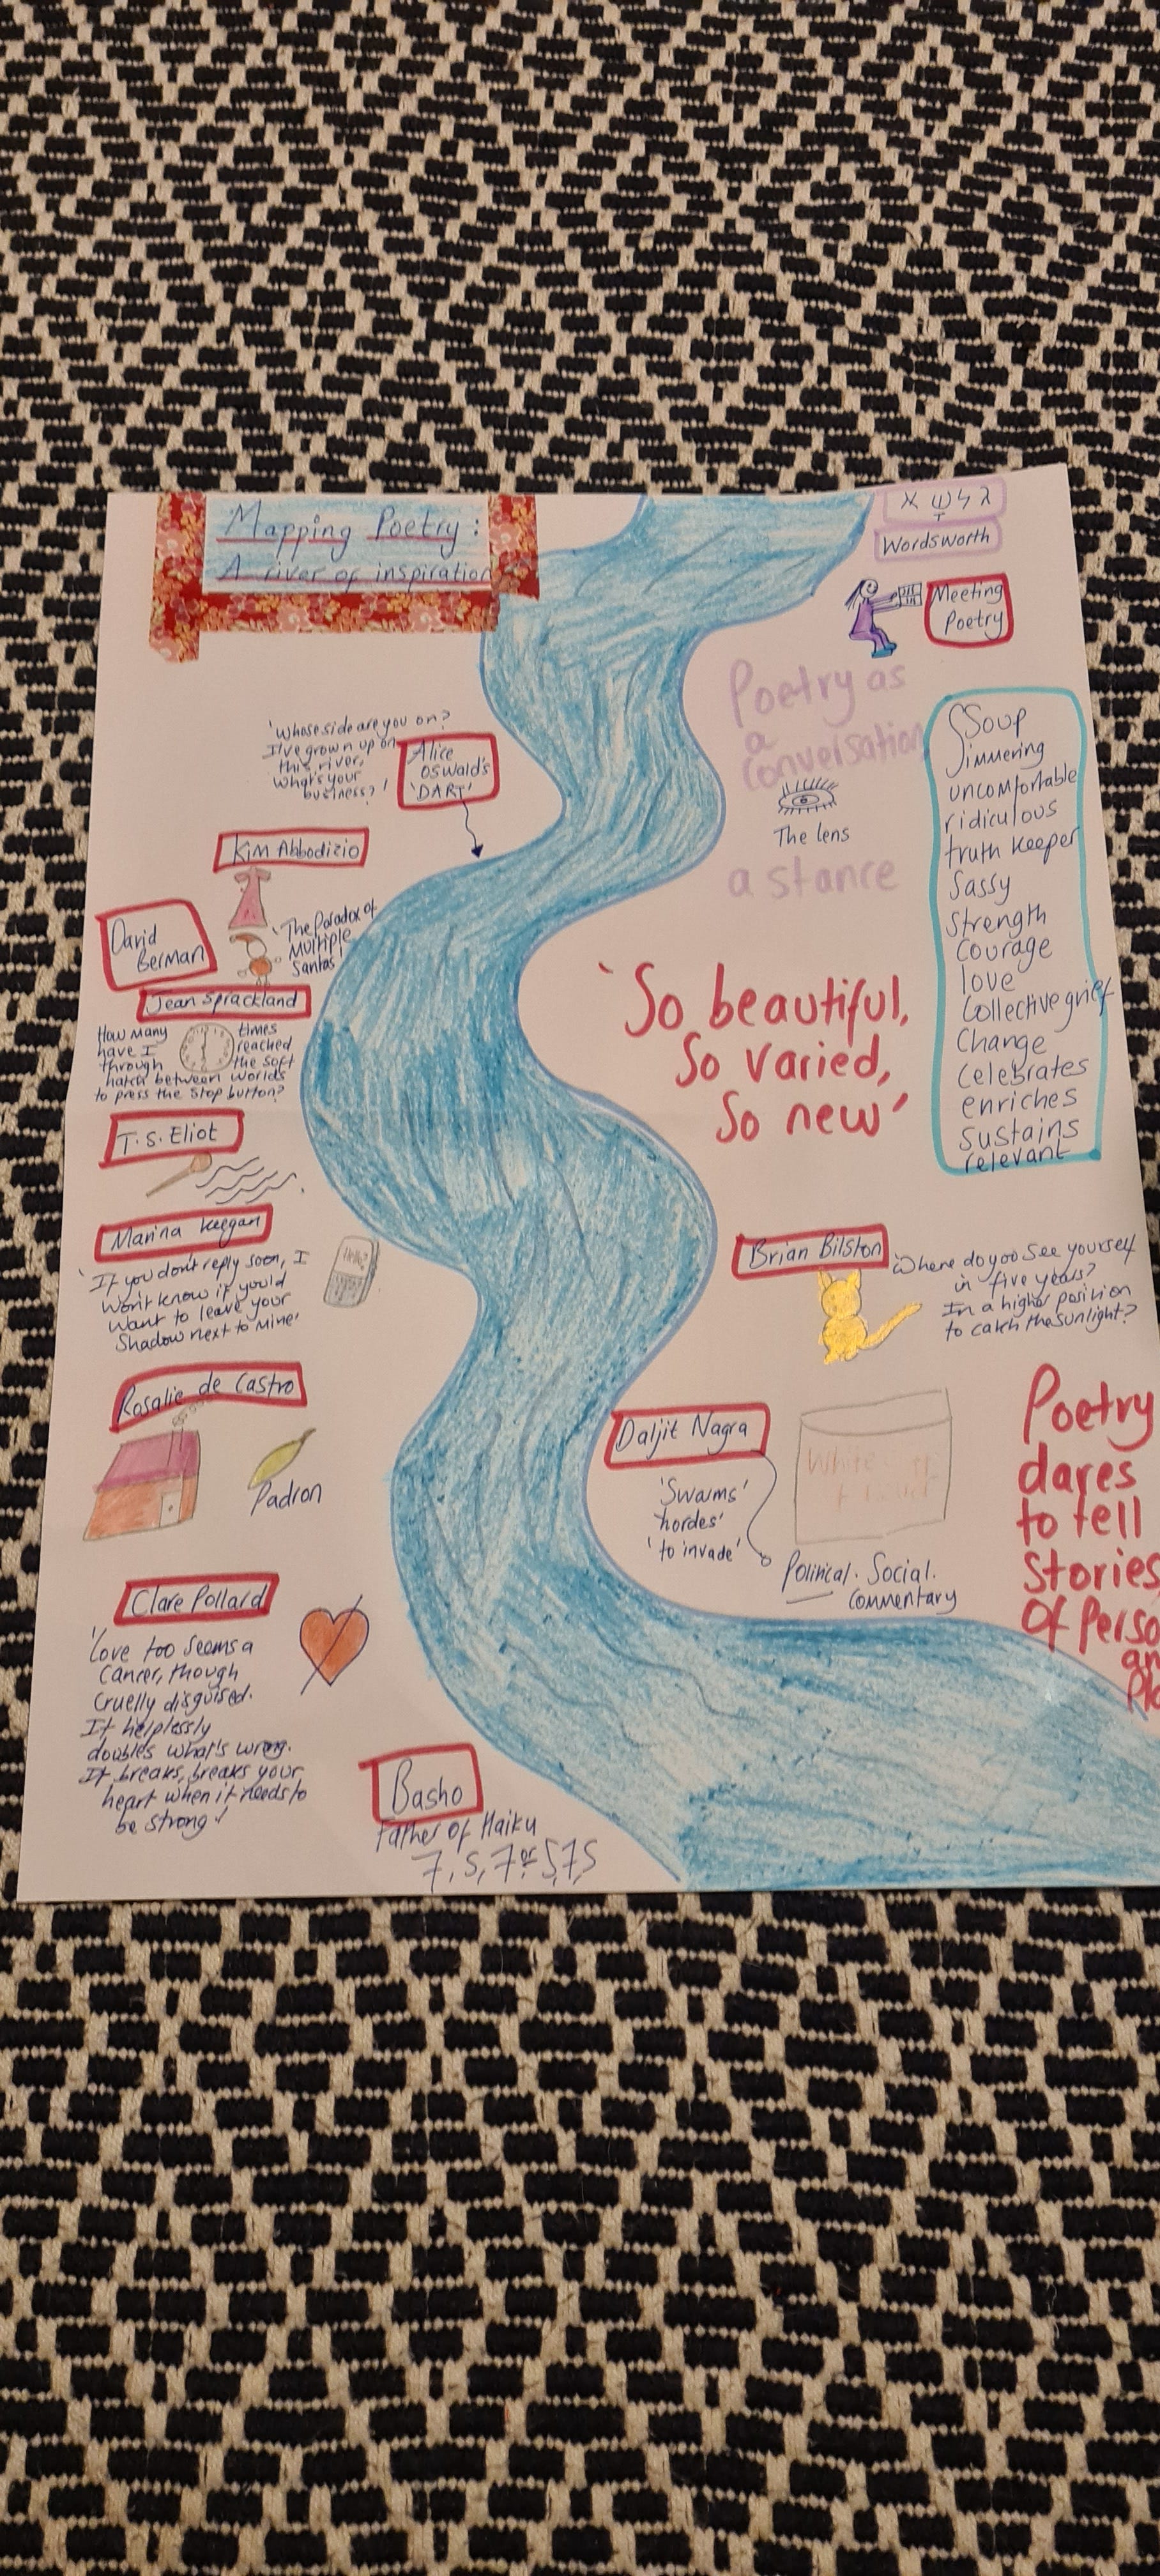 Mapping Poetry:
A river of inspiration
Wordsworth
Meeting
Poetry
Poetry as
a
conversation
The lens
a stance
Soup
Simmering
uncomfortable
ridiculous
truth keeper
Sassy
Strength
Courage
love
Collective grief
Change
Celebrates
enriches
sustains
relevant
'whose side are you on?
I've grown up on
this river,
what's your
business?'
Alice
Oswald's
'DART'
Kim Abbodizio
David
Berman
'The Paradox of
Multiple
Santas'
Jean Sprackland
How many times
have I reached
through the soft
hatch between worlds
to press the stop button?
'So beautiful,
So varied,
So new'
T.S. Eliot
Marina Keegan
'If you don't reply soon, I
Won't know if you'd
Want to leave your
Shadow next to Mine'
Hello?
Brian Bilston
'Where do you see yourself
in five years?
In a higher position
to catch the sunlight?
Rosalie de Castro
Padron
Daljit Nagra
'Swarms'
'hordes'
'to invade'
White
Political. Social.
Commentary
Poetry
dares
to tell
Stories,
Of Perso
an
Pla
Clare Pollard
'Love too seems a
Cancer, though
Cruelly disguised.
It helplessly
doubles what's wrong.
It breaks, breaks your
heart when it needs to
be strong'
Basho
Father of Haiku
7,5,7 or 5,7,5